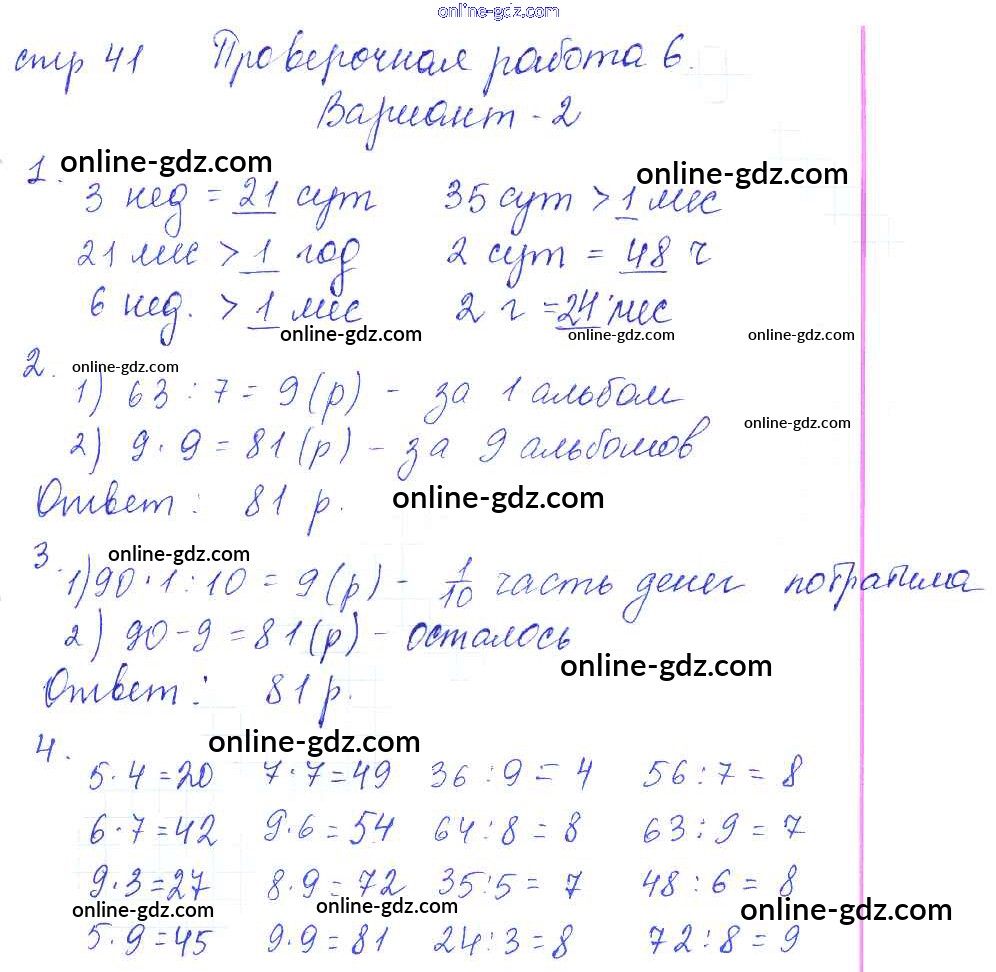 online-gdz.com
стр 41 Проверочная работа 6.
Вариант - 2
online-gdz.com online-gdz.com
1. 3 нед = 21 сут 35 сут > 1 мес
21 мес > 1 год 2 сут = 48 ч
6 нед. > 1 мес 2 г = 24 мес
online-gdz.com online-gdz.com online-gdz.com
2. online-gdz.com
1) 63 : 7 = 9 (р) - за 1 альбом
online-gdz.com
2) 9 · 9 = 81 (р) - за 9 альбомов
Ответ: 81 р. online-gdz.com
3. online-gdz.com
1) 90 · 1 : 10 = 9 (р) - 1/10 часть денег потратила
2) 90 - 9 = 81 (р) - осталось
online-gdz.com
Ответ: 81 р.
4. online-gdz.com
5 · 4 = 20 7 · 7 = 49 36 : 9 = 4 56 : 7 = 8
6 · 7 = 42 9 · 6 = 54 64 : 8 = 8 63 : 9 = 7
9 · 3 = 27 8 · 9 = 72 35 : 5 = 7 48 : 6 = 8
online-gdz.com online-gdz.com online-gdz.com
5 · 9 = 45 9 · 9 = 81 24 : 3 = 8 72 : 8 = 9